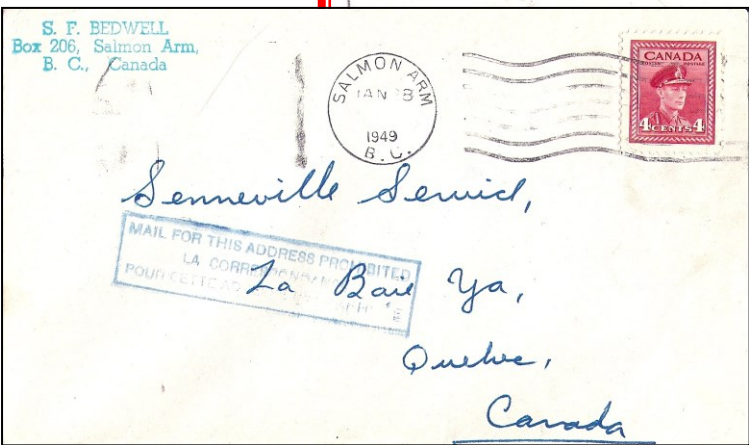 S. F. BEDWELL
Box 206, Salmon Arm,
B. C., Canada
SALMON ARM
JAN 8
1949
B. C.
CANADA
POSTES POSTAGE
4 CENTS 4
Senneville Service,
MAIL FOR THIS ADDRESS PROHIBITED
LA
POUR CETTE
La Baie Ya,
Quebec,
Canada